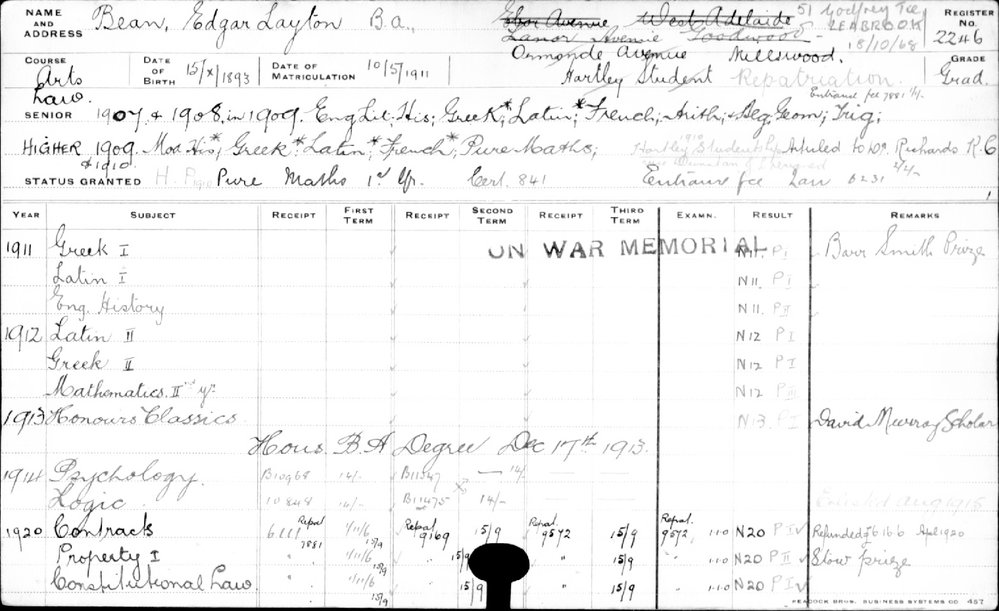 NAME AND ADDRESS Bean, Edgar Layton B.a., Avenue, West Adelaide 51 Godfrey Tce LEABROOK 18/10/68 REGISTER No. 2246
Avenue Goodwood
Ormonde Avenue Millswood.
COURSE Arts Law. DATE OF BIRTH 15/X/1893 DATE OF MATRICULATION 10/5/1911 Hartley Student Repatriation. GRADE Grad.
Entrance fee 7881
SENIOR 1907, & 1908, in 1909. Eng Lit; His; Greek*; Latin*; French; Arith; & Alg; Geom; Trig;
HIGHER 1909. Mod His*; Greek*; Latin*; French*; Pure Maths; Hartley Studentship Richards R.C
& 1910.
STATUS GRANTED H. Pure Maths 1st Yr. Cert. 841 Entrance fee Law 6231
YEAR SUBJECT RECEIPT FIRST TERM RECEIPT SECOND TERM RECEIPT THIRD TERM EXAMN. RESULT REMARKS
ON WAR MEMORIAL
1911 Greek I N11. PI Barr Smith Prize
Latin I N11. PI
Eng. History N11. PII
1912 Latin II N12 PI
Greek II N12 PI
Mathematics II nd yr. N12
1913 Honours Classics. N13 PI David Murray Scholar
Hons. B.A Degree Dec 17th 1913.
1914 Psychology. B10968 14/- B11347 — 14/-
Logic 10848 14/- B11475 14/- Enlisted Aug 1915
1920 Contracts 6111 Repat 7881 1/11/6 15/9 Repat 9169 15/9 Repat. 9572 15/9 Repat. 9572, 1·1·0 N20 PIV Refunded £6 16 6 Apl 1920
Property I " 1/11/6 15/9 " 15/9 " 15/9 " 1·1·0 N20 PII Stow prize
Constitutional Law. " 1/11/6 15/9 15/9 " 15/9 " 1·1·0 N20 PIV
PEACOCK BROS. BUSINESS SYSTEMS CO 457